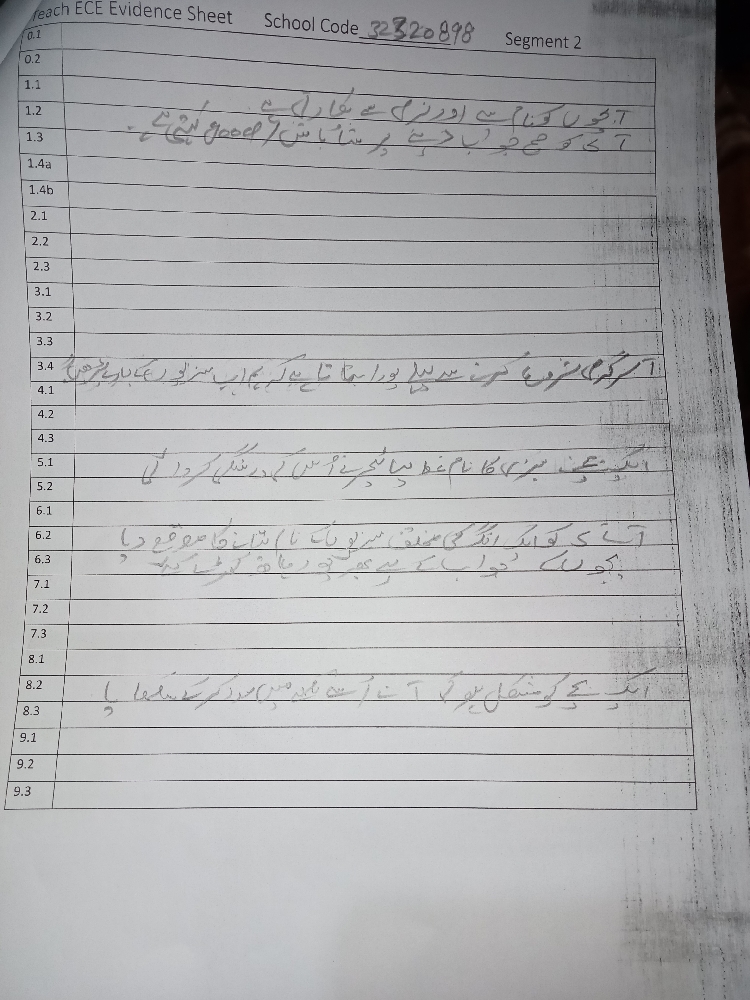 Teach ECE Evidence Sheet School Code 32320898 Segment 2
0.1
0.2
1.1
1.2 آ بچوں کو نام سے اور نرمی سے پکارتی ہے
1.3 آ بچے کو صحیح جواب دینے پر شاباش / good کہتی ہے۔
1.4a
1.4b
2.1
2.2
2.3
3.1
3.2
3.3
3.4 آ سرگرمی شروع کرنے سے پہلے بتاتا ہے کہ ہم اب سبزیوں کے بارے
4.1
4.2
4.3
5.1 ایک بچے نے سبزی کا نام غلط لیا ٹیچر نے اس کی درستگی کروائی
5.2
6.1
6.2 آ نے بچے کو الگ الگ مختلف سبزیوں کے نام بتانے کا موقع دیا
6.3 بچوں کے جواب کے لیے
7.1
7.2
7.3
8.1
8.2 ایک بچے کو مشکل ہوئی آ نے اُسے میں مدد کر کے سکھایا
8.3
9.1
9.2
9.3